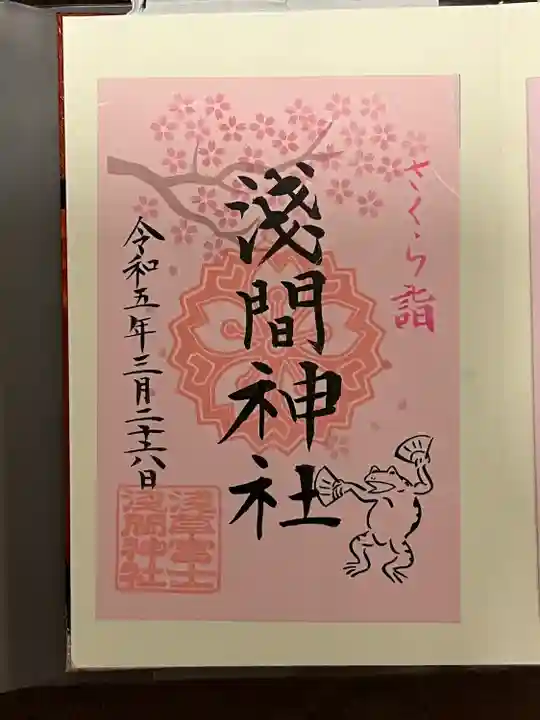 さくら詣
淺間神社
令和五年三月二十六日
浅草富士
浅間神社